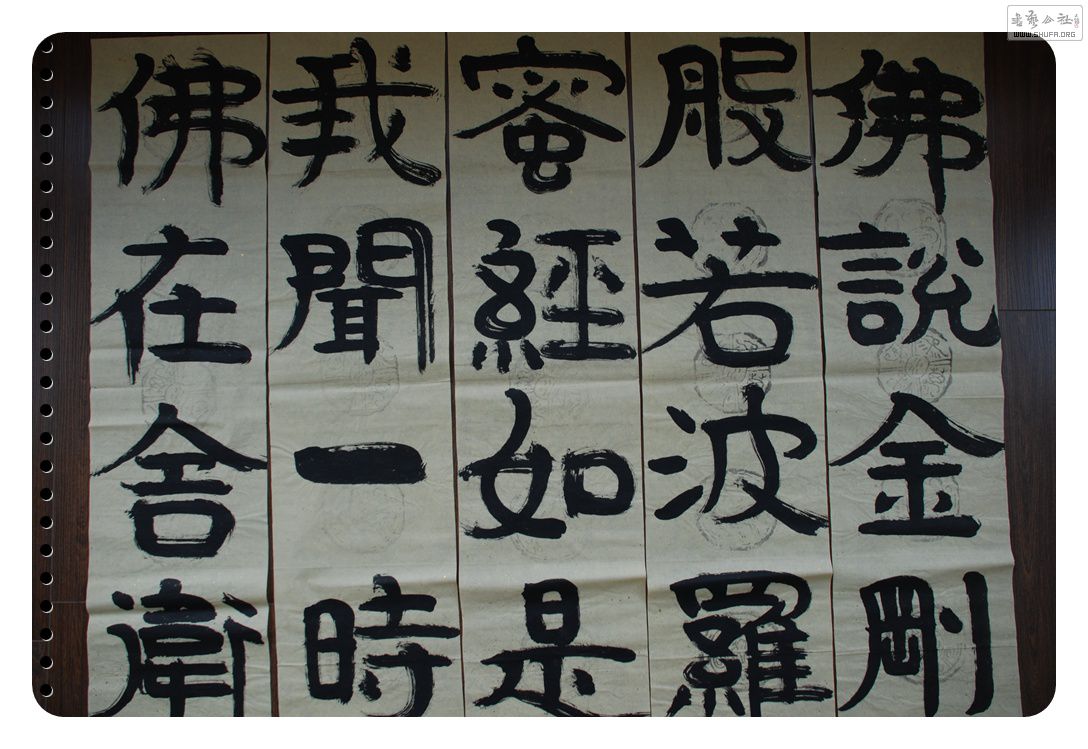 佛說金剛
般若波羅
蜜經如是
我聞一時
佛在舍衛
書藝公社
WWW.SHUFA.ORG